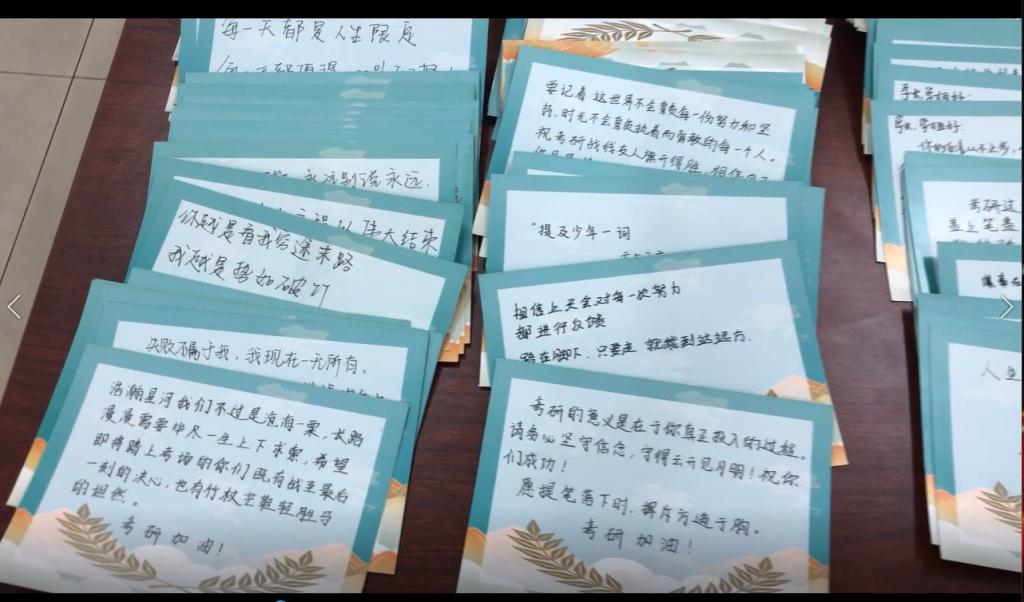 每一天都是人生限定
永远别说永远.
以伟大结束
你越是看我穷途末路
我越是势如破竹
失败不属于我，我现在一无所有，
浩瀚星河我们不过是沧海一粟，长路
漫漫需要毕尽一生上下求索，希望
即将踏上考场的你们既有战至最后
一刻的决心，也有竹杖芒鞋轻胜马
的坦然。
考研加油！
要记着 这世界不会辜负每一份努力和坚
持，时光不会辜负执着而勇敢的每一个人。
祝考研战线友人旗开得胜，相信
“提及少年一词
相信上天会对每一次努力
都进行反馈
路在脚下，只要走 就能到达远方.
考研的意义是在于你真正投入的过程。
请务必坚守信念，守得云开见月明！祝你
们成功！
愿提笔落下时，挥斥方遒于胸。
考研加油！
学长学姐好：
学长、学姐好：
考研这
盖上笔盖
人生